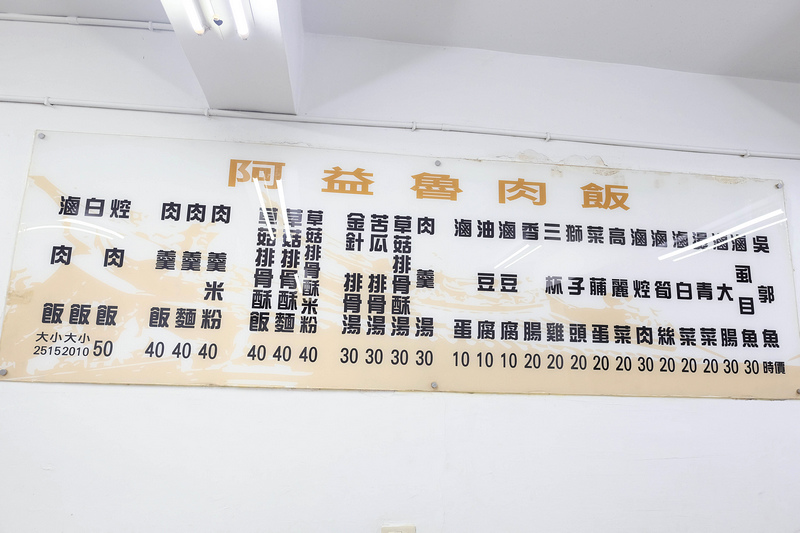 阿益魯肉飯
滷肉飯 大小 2515
白飯 大小 2010
焢肉飯 50
肉羹飯 40
肉羹麵 40
肉羹米粉 40
草菇排骨酥飯 40
草菇排骨酥麵 40
草菇排骨酥米粉 40
金針排骨湯 30
苦瓜排骨湯 30
草菇排骨酥湯 30
肉羹湯 30
滷蛋 10
油豆腐 10
滷豆腐 10
香腸 20
三杯雞 20
獅子頭 20
菜蒲蛋 20
高麗菜 20
滷焢肉 30
滷筍絲 20
滷白菜 20
燙青菜 20
滷大腸 30
滷虱目魚 30
吳郭魚 時價